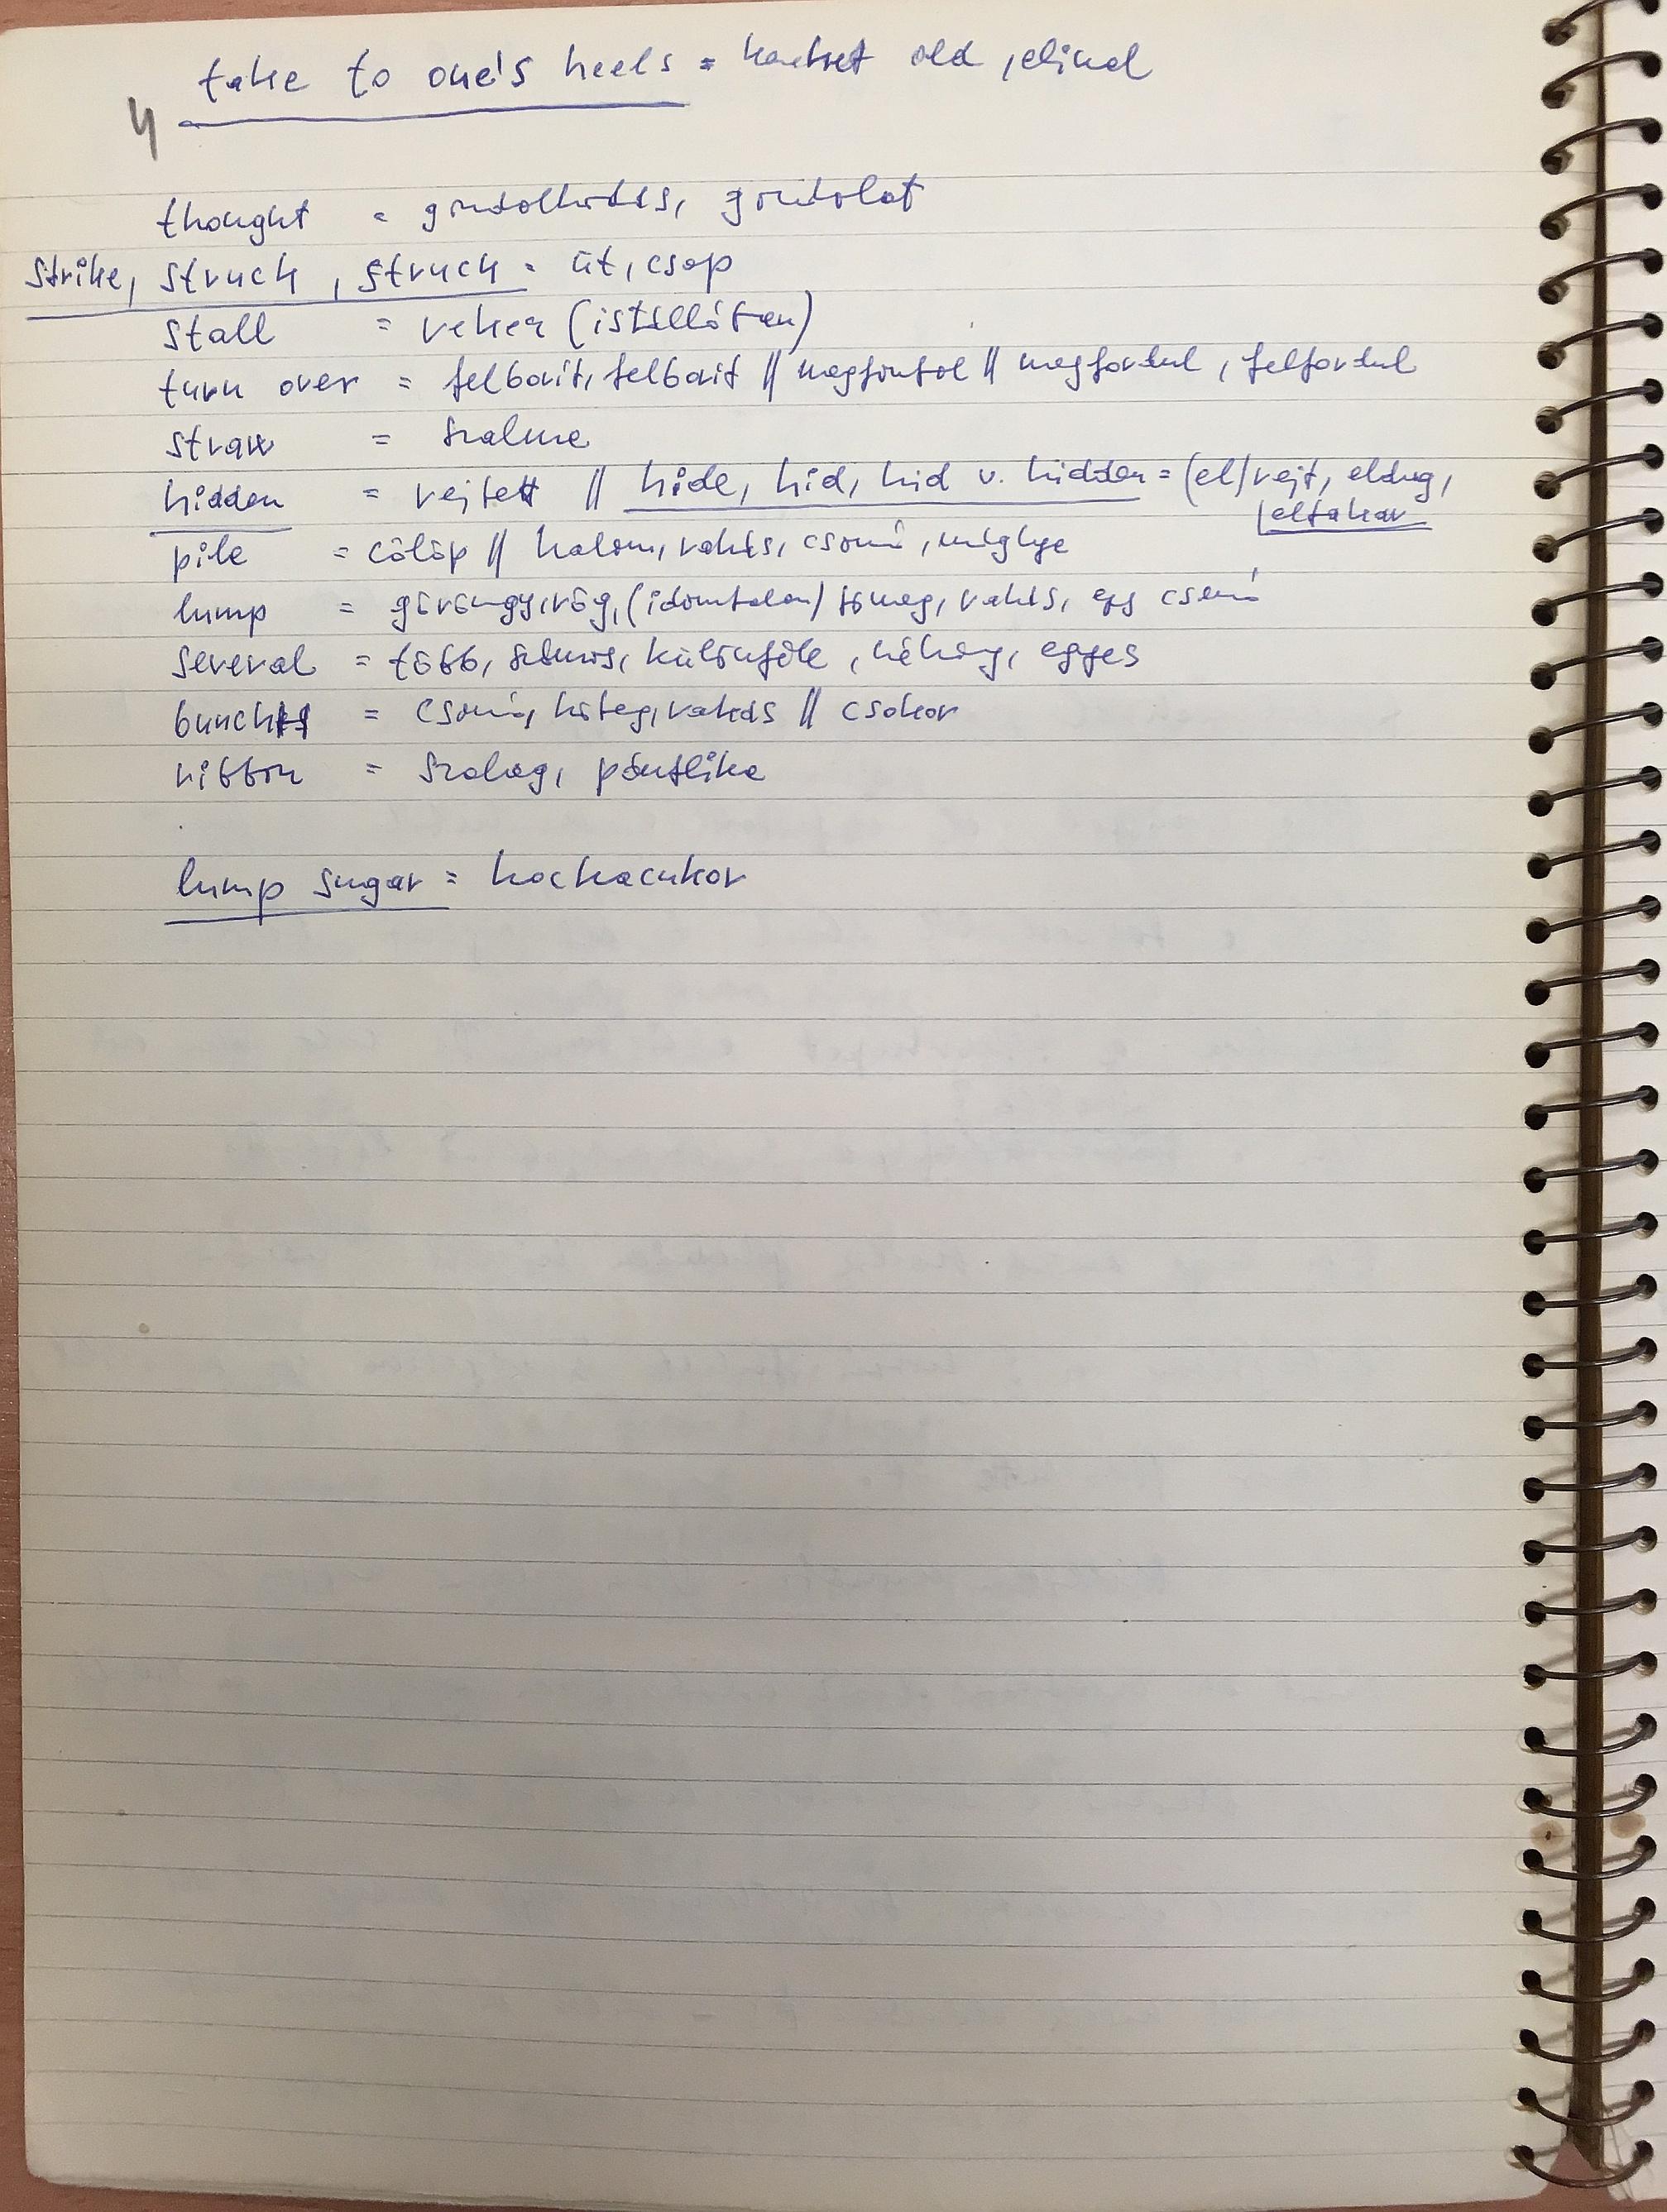 take to one's heels = kereket old, elinal
4
thought = gondolkodás, gondolat
strike, struck, struck = üt, csap
stall = rekesz (istállóban)
turn over = felborít, felborít || megfontol || megfordul, felfordul
straw = szalma
hidden = rejtett || hide, hid, hid v. hidden = (el)rejt, eldug,
eltakar
pile = cölöp || halom, rakás, csomó, máglya
lump = göröngy, rög, (idomtalan) tömeg, rakás, egy csomó
several = több, számos, különféle, néhány, egyes
bunch = csomó, köteg, rakás || csokor
ribbon = szalag, pántlika
lump sugar = kockacukor